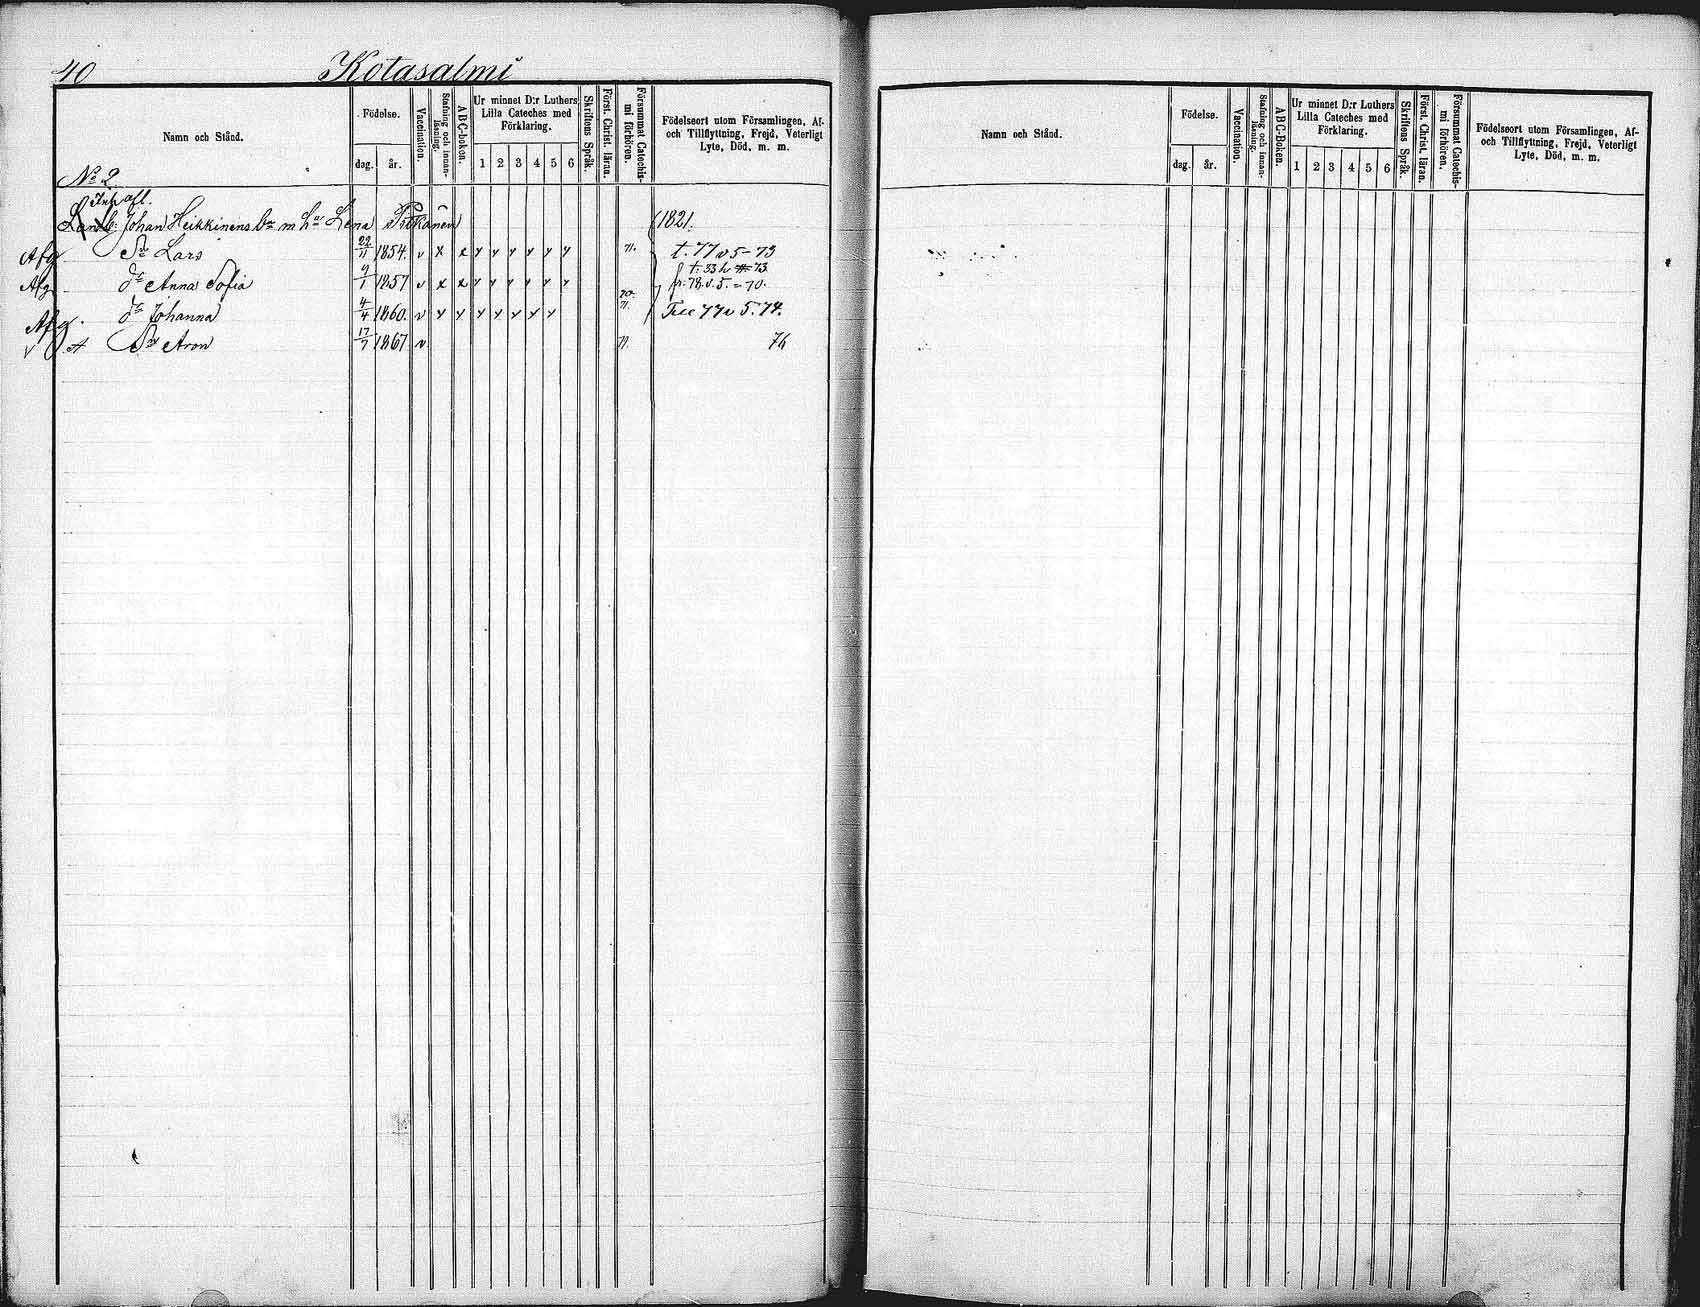 40 Kotasalmi
Namn och Stånd.
Födelse.
dag. år.
Vaccination.
Stafning och innan-läsning.
ABC-boken.
Ur minnet D:r Luthers
Lilla Cateches med
Förklaring.
1 2 3 4 5 6
Skriftens Språk.
Först. Christ. läran.
Försummat Catechis-mi förhören.
Födelseort utom Församlingen, Af-
och Tillflyttning, Frejd, Veterligt
Lyte, Död, m. m.
No 2
Inh afl.
Landb. Johan Heikkinens bn m hu Lena Pitkänen (1821.
Afg Sn Lars 22/11 1854. v x x y y y y y y 71. t. 77 v 5 - 73
t. 33 h 73
Afg dr Anna Sofia 9/1 1857 v x x y y y y y y fr. 78. v. 5. = 70.
Afg. dr Johanna 4/4 1860. v y y y y y y y 70. 71. 77 v 5. 74.
v A Sn Aron 17/7 1867 v 71. 76
Namn och Stånd.
Födelse.
dag. år.
Vaccination.
Stafning och innan-läsning.
ABC-Boken.
Ur minnet D:r Luthers
Lilla Cateches med
Förklaring.
1 2 3 4 5 6
Skriftens Språk.
Först. Christ. läran.
Försummat Catechis-mi förhören.
Födelseort utom Församlingen, Af-
och Tillflyttning, Frejd, Veterligt
Lyte, Död, m. m.